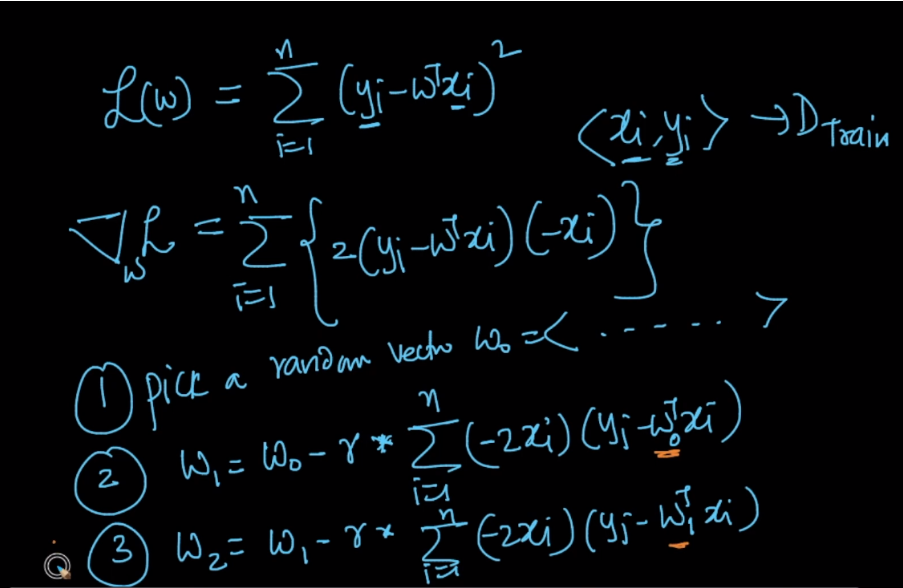 ℒ(w) = Σ_{i=1}^{n} (yᵢ - wᵀxᵢ)²
<xᵢ, yᵢ> → D Train
∇_w ℒ = Σ_{i=1}^{n} {2(yᵢ - wᵀxᵢ)(-xᵢ)}
① pick a random vector w₀ = < ...... >
② w₁ = w₀ - r * Σ_{i=1}^{n} (-2xᵢ)(yᵢ - w₀ᵀxᵢ)
③ w₂ = w₁ - r * Σ_{i=1}^{n} (-2xᵢ)(yᵢ - w₁ᵀxᵢ)